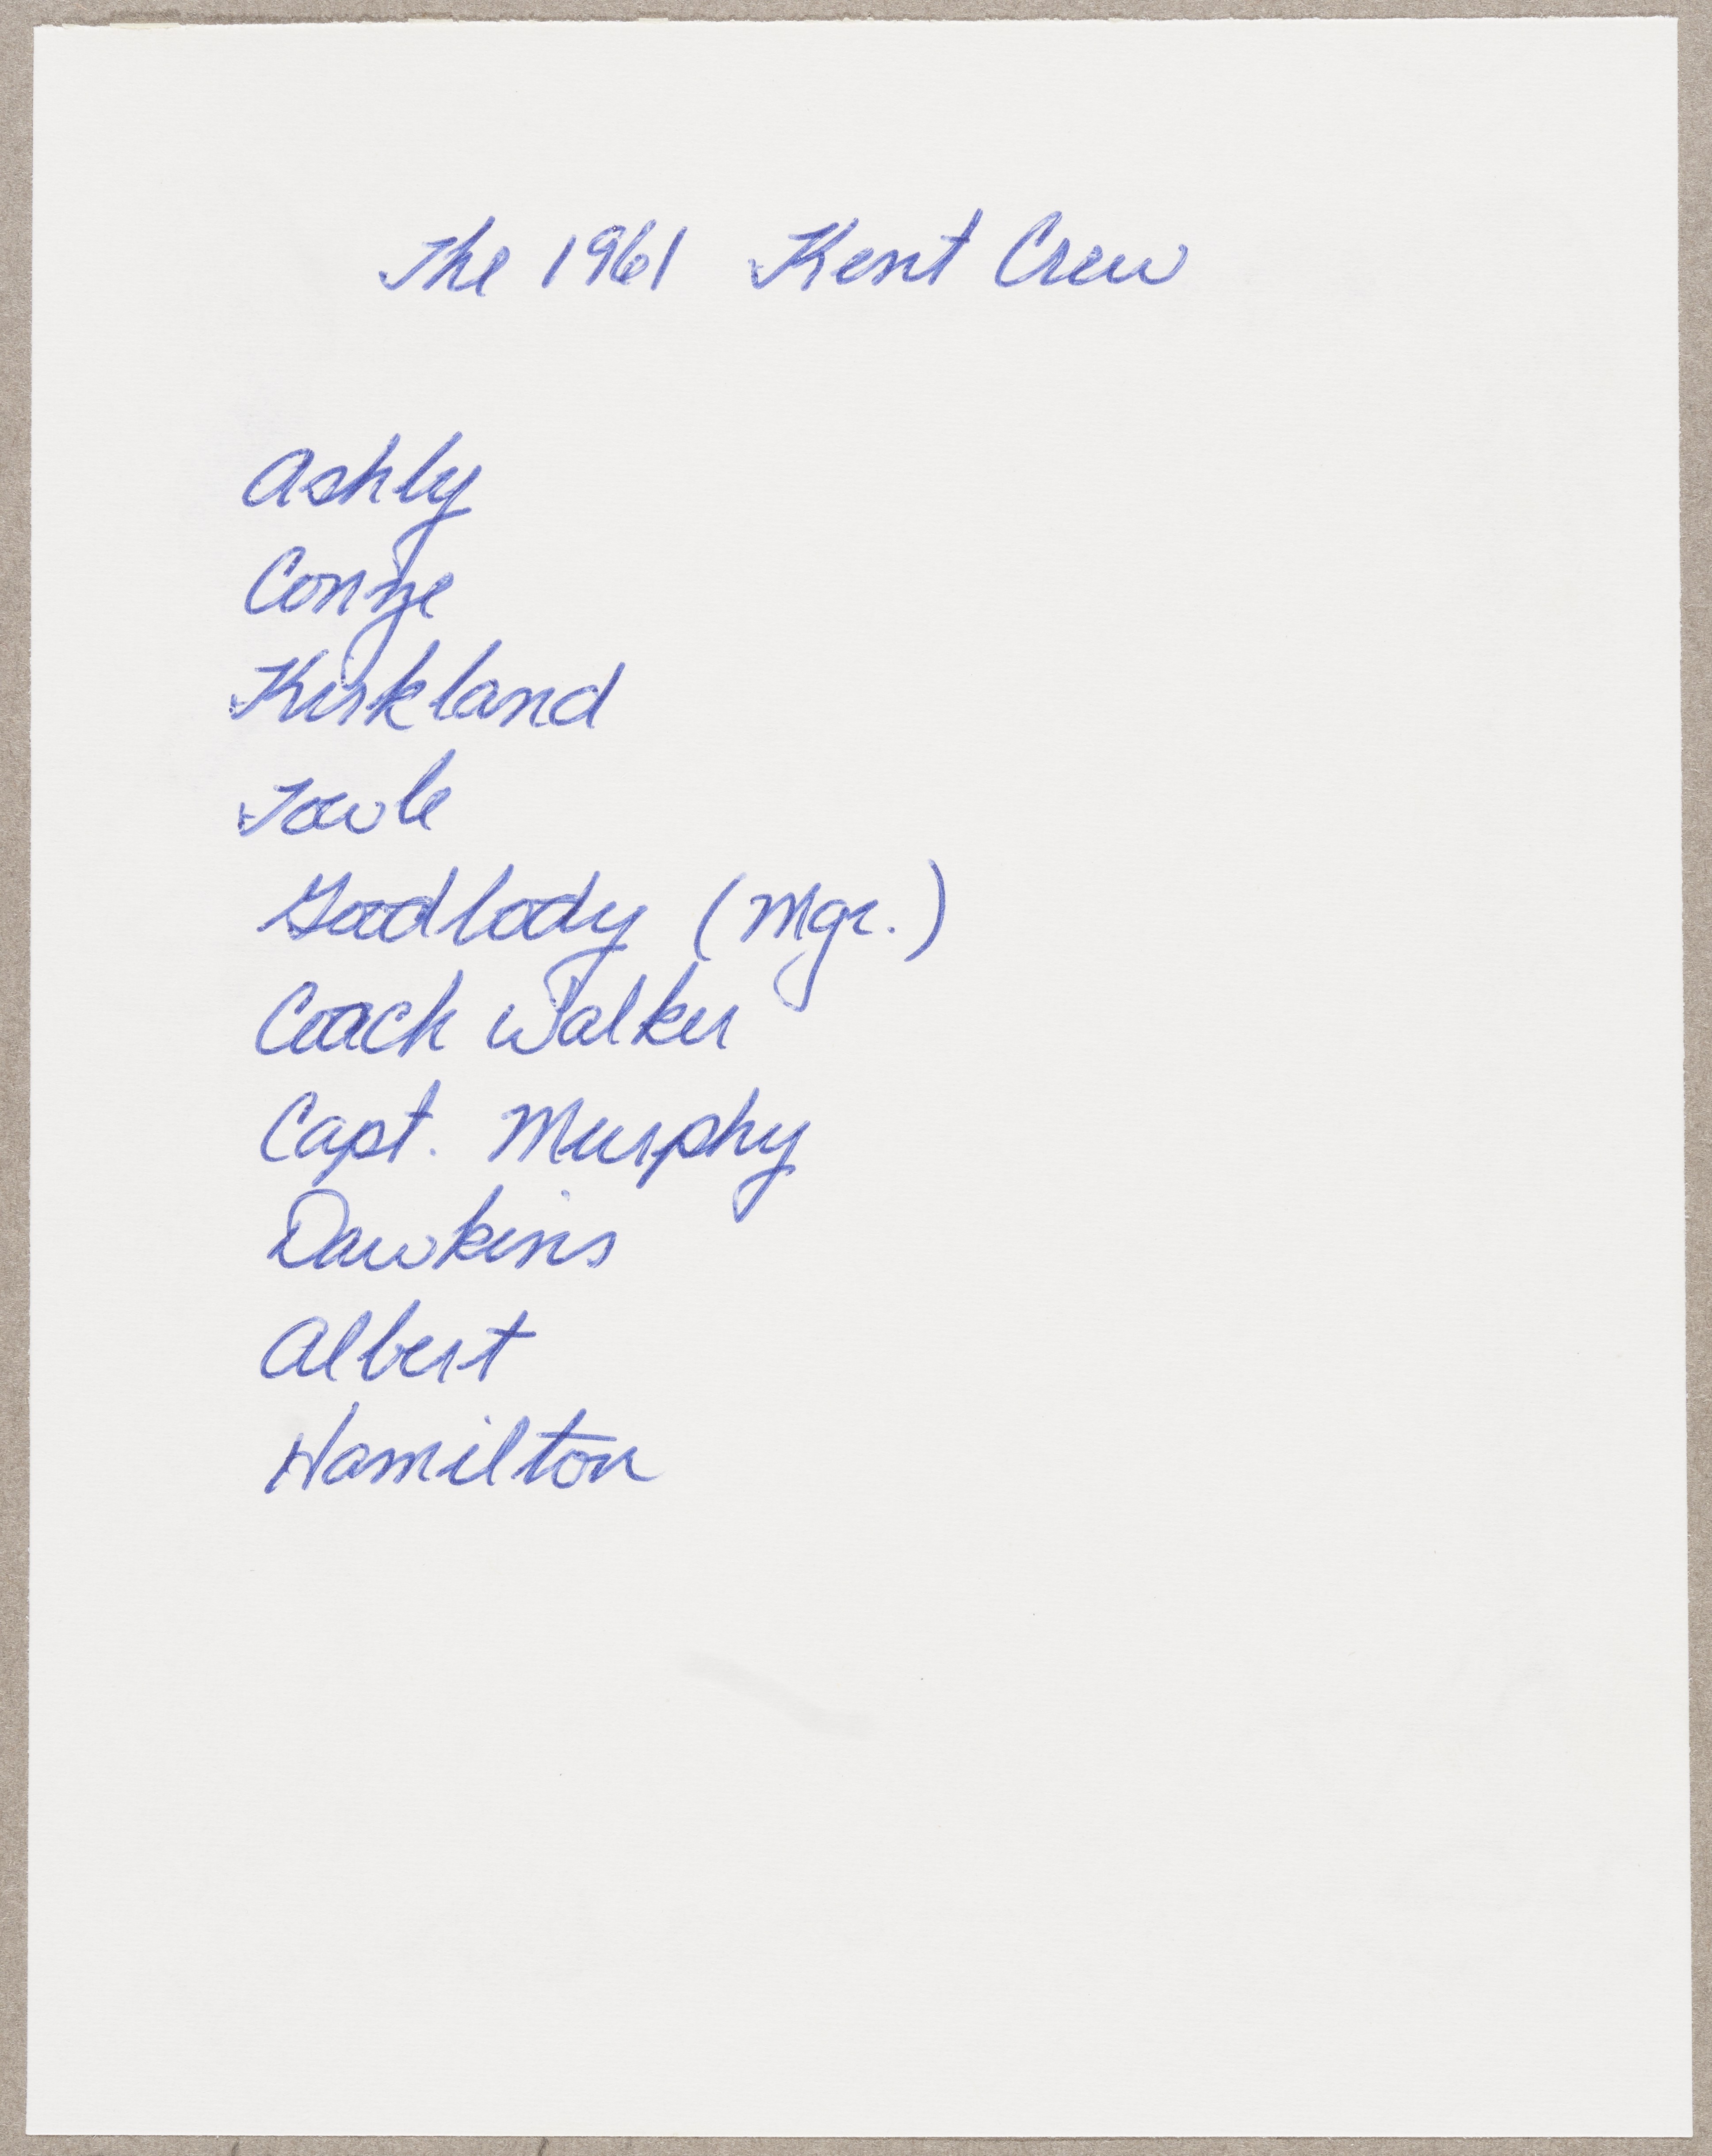 The 1961 Kent Crew
Ashly
Conze
Kirkland
Towle
Goodbody (Mgr.)
Coach Walker
Capt. Murphy
Dawkins
Albert
Hamilton